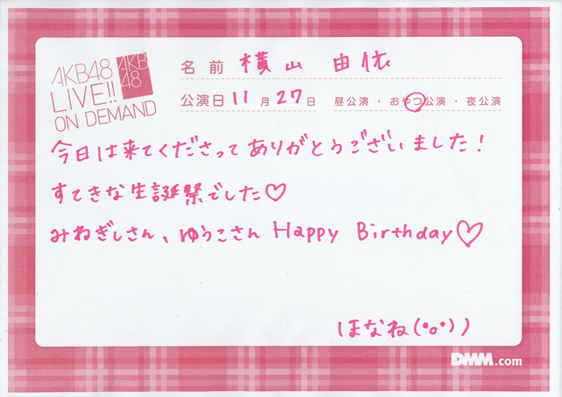 AKB48
LIVE!!
ON DEMAND
AKB
48
名前 横山 由依
公演日 11月27日 昼公演・おやつ公演・夜公演
今日は来てくださってありがとうございました!
すてきな生誕祭でした♡
みねぎしさん、ゆうこさん Happy Birthday♡
ほなね(°o°))
DMM.com